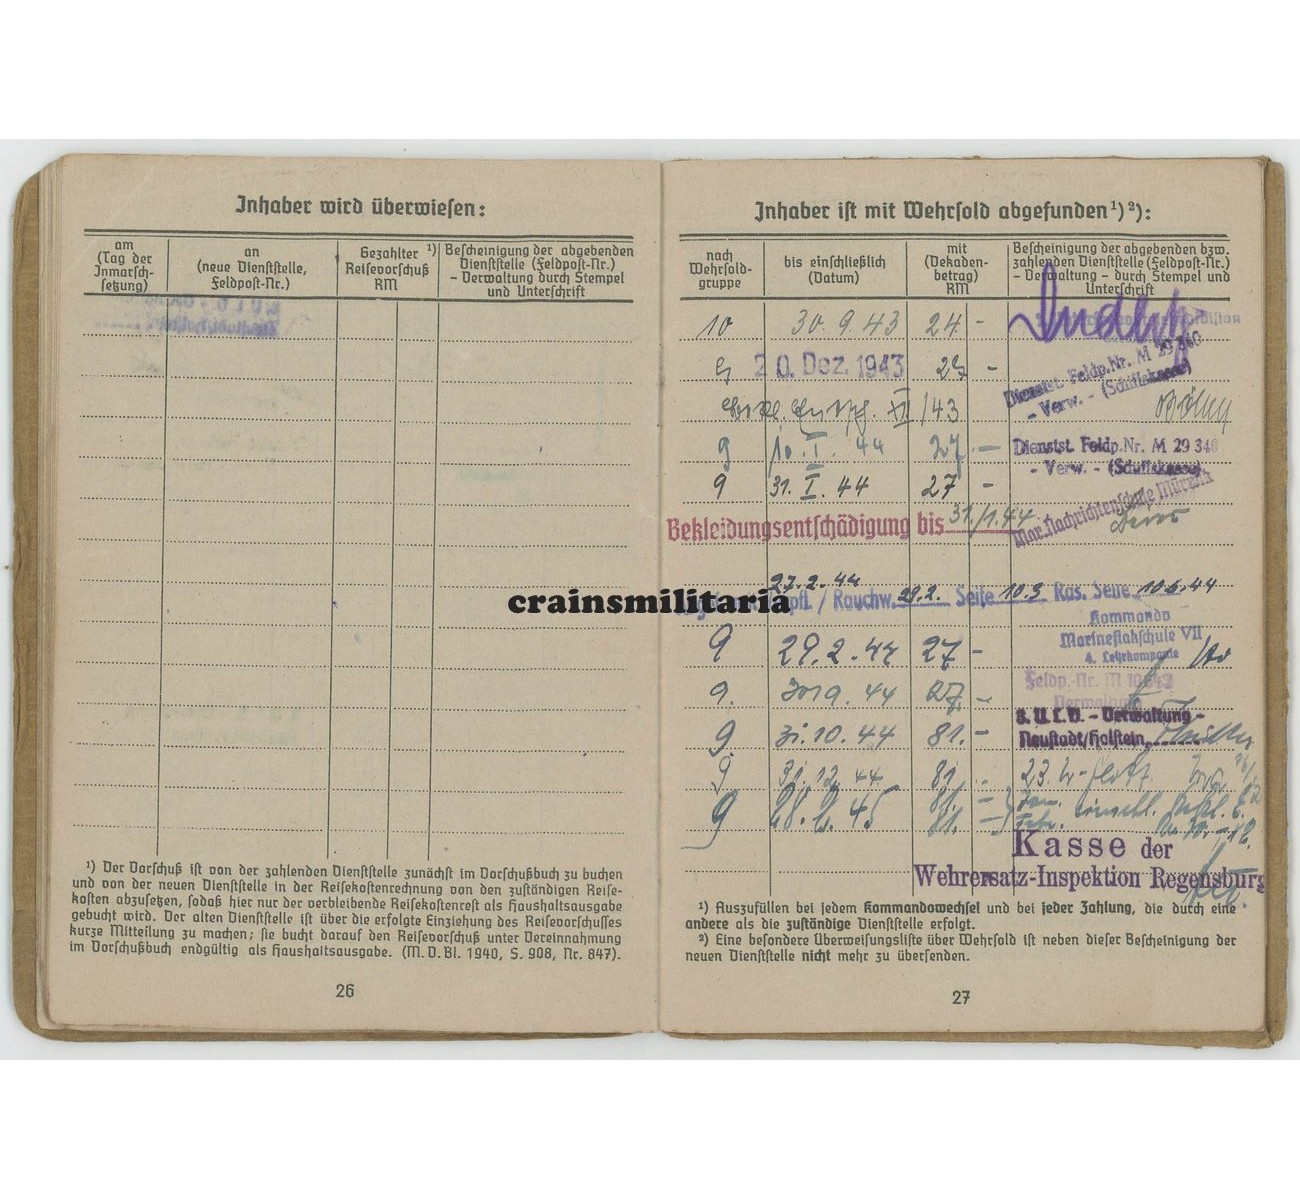 Inhaber wird überwiesen:
am
(Tag der
Inmarsch-
setzung)
an
(neue Dienststelle,
Feldpost-Nr.)
Gezahlter ¹)
Reisevorschuß
RM
Bescheinigung der abgebenden
Dienststelle (Feldpost-Nr.)
- Verwaltung durch Stempel
und Unterschrift
¹) Der Vorschuß ist von der zahlenden Dienststelle zunächst im Vorschußbuch zu buchen
und von der neuen Dienststelle in der Reisekostenrechnung von den zuständigen Reise-
kosten abzusetzen, sodaß hier nur der verbleibende Reisekostenrest als Haushaltsausgabe
gebucht wird. Der alten Dienststelle ist über die erfolgte Einziehung des Reisevorschusses
kurze Mitteilung zu machen; sie bucht darauf den Reisevorschuß unter Vereinnahmung
im Vorschußbuch endgültig als Haushaltsausgabe. (M. V. Bl. 1940, S. 908, Nr. 847).
26
Inhaber ist mit Wehrsold abgefunden¹)²):
nach
Wehrsold-
gruppe
bis einschließlich
(Datum)
mit
(Dekaden-
betrag)
RM
Bescheinigung der abgebenden bzw.
zahlenden Dienststelle (Feldpost-Nr.)
- Verwaltung - durch Stempel und
Unterschrift
10 30.9.43 24 -
20. Dez. 1943 -
Dienstst. Feldp.Nr. M 29 340
- Verw. - (Schiffskasse)
XI/43
9 10. I. 44 27 -
Dienstst. Feldp.Nr. M 29 340
- Verw. - (Schiffskasse)
9 31. I. 44 27 -
Mar.Nachrichtenschule Mürwik
Bekleidungsentschädigung bis 31/1.44
27.2.44
/ Rauchw. 29.2. Seife 10.3 Ras. Seife 10.6.44
crainsmilitaria
Kommando
Marineflakschule VII
4. Lehrkompanie
9 29.2.44 27 -
9. 44 27. -
Feldp.-Nr. M
Verwaltung
9. 31.10.44 81. -
3. U. L. D. - Verwaltung -
Neustadt/Holstein,
9 31.12.44 81. -
9 28.2.45 81. -
81. -
Kasse der
Wehrersatz-Inspektion Regensburg
¹) Auszufüllen bei jedem Kommandowechsel und bei jeder Zahlung, die durch eine
andere als die zuständige Dienststelle erfolgt.
²) Eine besondere Überweisungsliste über Wehrsold ist neben dieser Bescheinigung der
neuen Dienststelle nicht mehr zu übersenden.
27